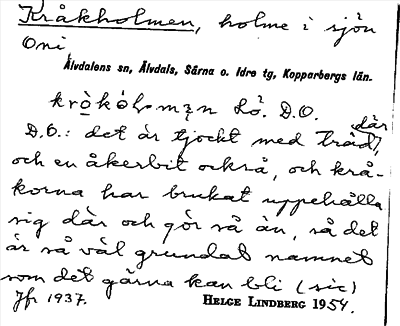 Kråkholmen, holme i sjön
Oni
Älvdalens sn, Älvdals, Särna o. Idre tg, Kopparbergs län.
D.O.
D.O.: det är tjockt med träd, där
och en åkerbit också, och krå-
korna har brukat uppehålla
sig där och gör så än, så det
är så väl grundat namnet
som det gärna kan bli (sic)
Jfr 1937.
HELGE LINDBERG 1954.